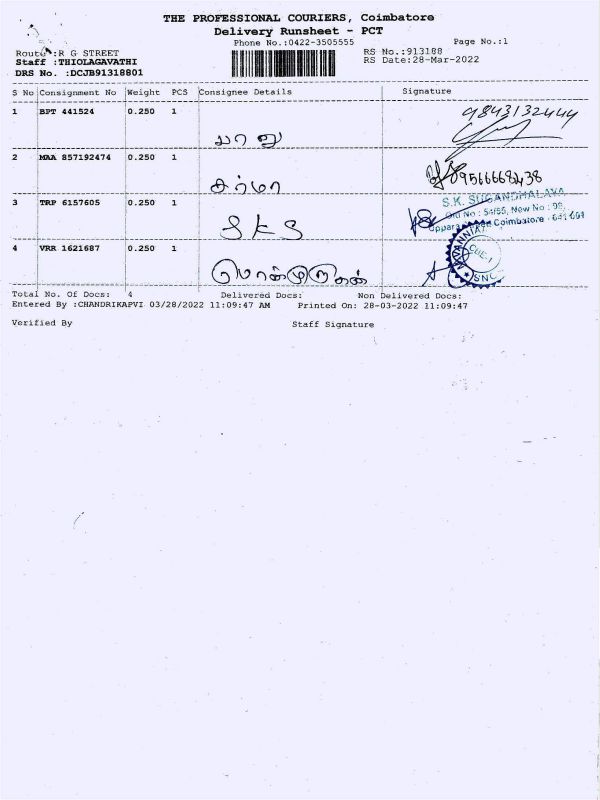 THE PROFESSIONAL COURIERS, Coimbatore
Delivery Runsheet - PCT
Phone No.:0422-3505555
Page No.:1
Route :R G STREET
RS No.:913188
Staff :THIOLAGAVATHI
RS Date:28-Mar-2022
DRS No. :DCJB91318801
S No Consignment No Weight PCS Consignee Details Signature
1 BPT 441524 0.250 1 பானு 9843132444
2 MAA 857192474 0.250 1 சுர்மா 9566668438
3 TRP 6157605 0.250 1 SKS
S.K. SUGANDHALAYA
Old No : 54/55, New No : 99,
Coimbatore - 641 001
4 VRR 1621687 0.250 1 பொன்முருகன்
CBE-1
Total No. Of Docs: 4 Delivered Docs: Non Delivered Docs:
Entered By :CHANDRIKAPVI 03/28/2022 11:09:47 AM Printed On: 28-03-2022 11:09:47
Verified By Staff Signature